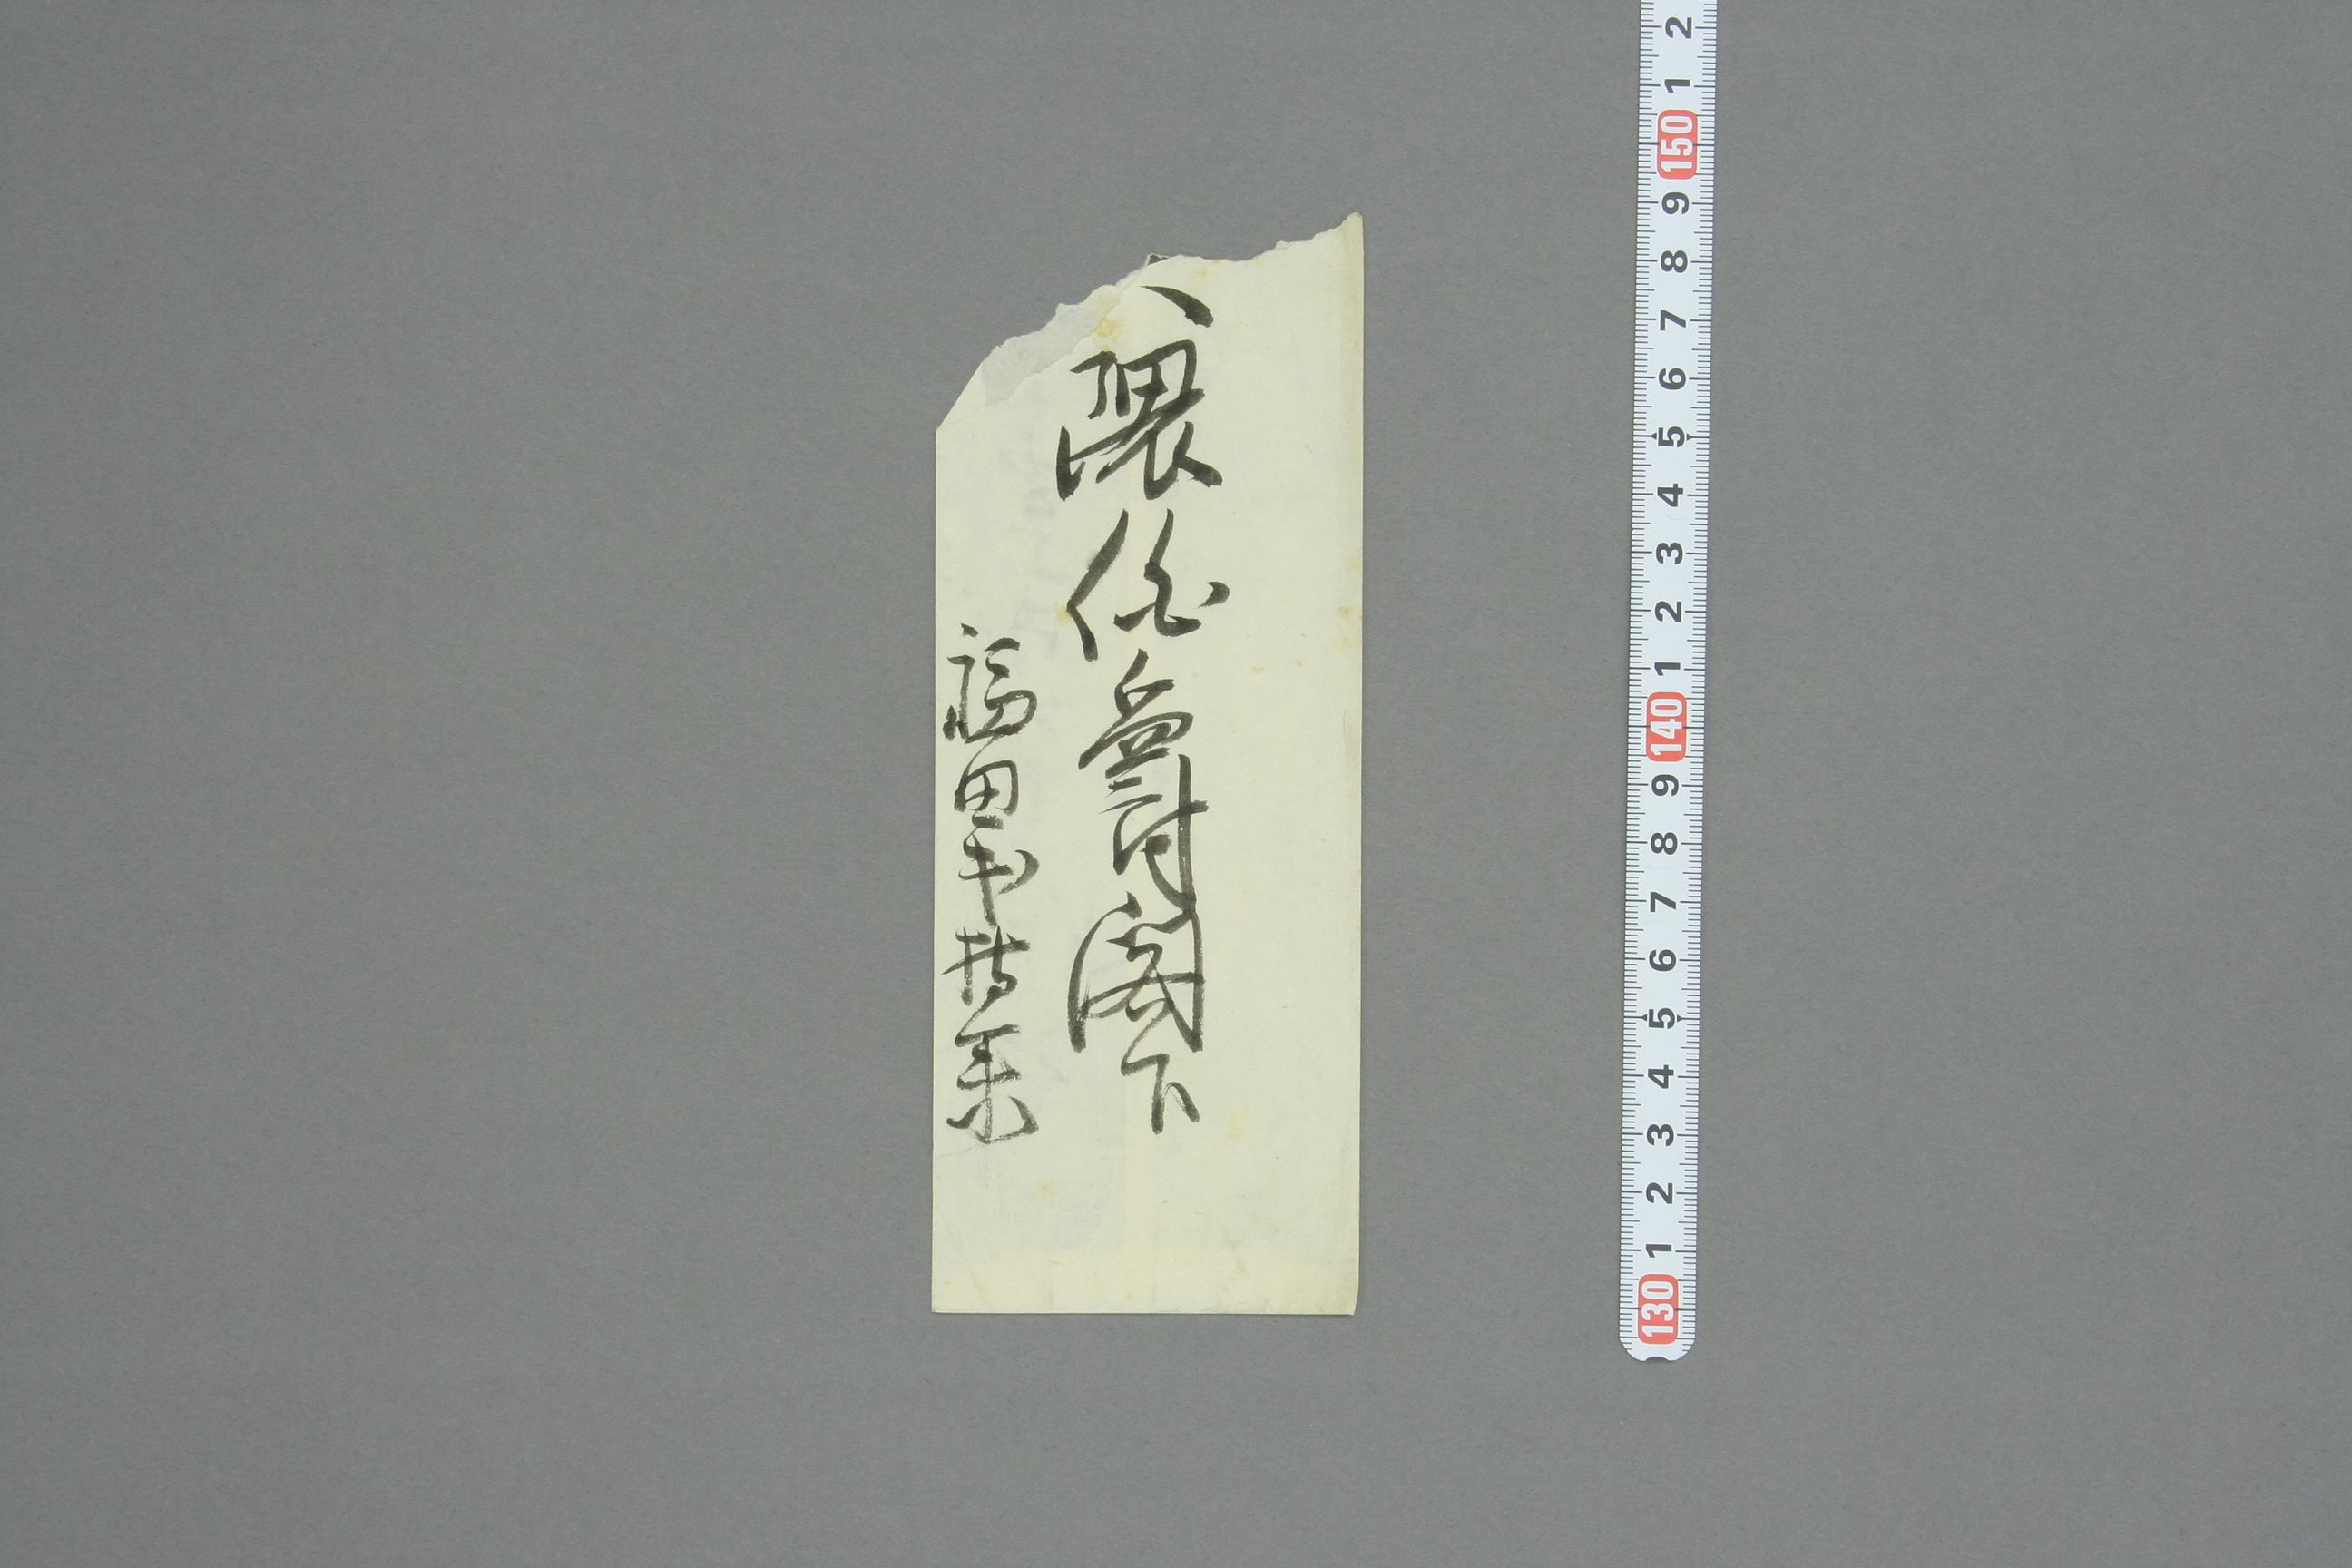 大隈伯爵閣下
福田氏持参
2
1
150
9
8
7
6
5
4
3
2
1
140
9
8
7
6
5
4
3
2
1
130